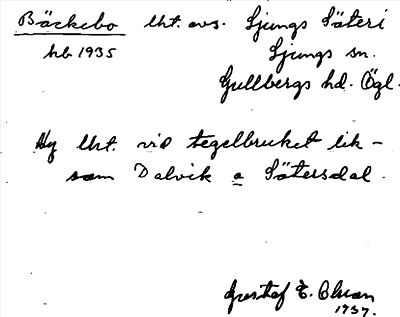 Bäckebo lht. avs. Ljungs Säteri
hb 1935 Ljungs sn.
Gullbergs hd. Ögl.
Ny lht. vid tegelbruket lik-
som Dalvik o Sätersdal.
Gustaf E. Olsson
1937.